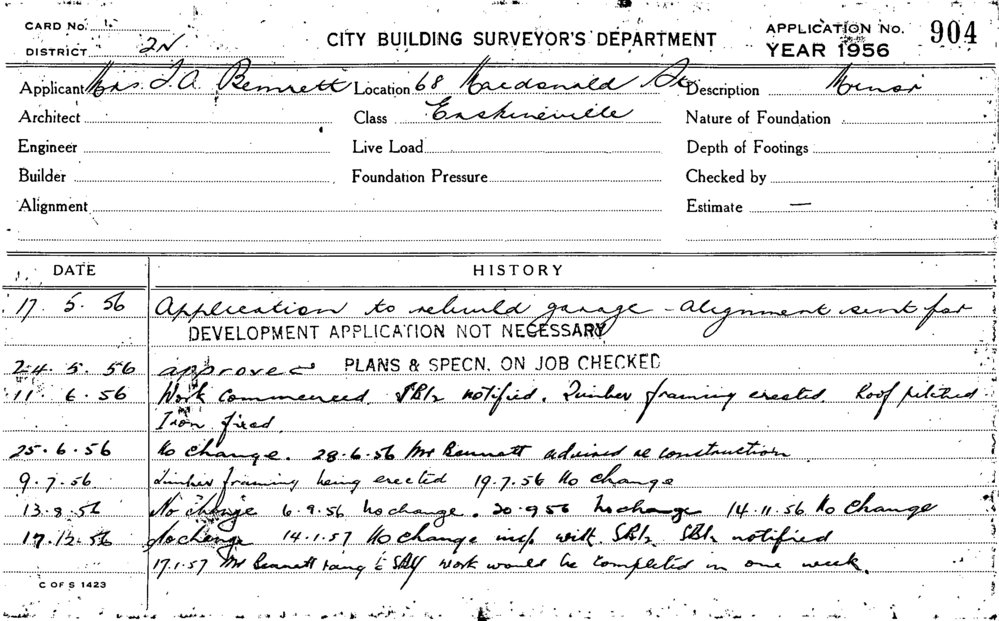 CARD No. 1.
DISTRICT 2N
CITY BUILDING SURVEYOR'S DEPARTMENT
APPLICATION No. 904
YEAR 1956
Applicant Mrs. J. A. Bennett Location 68 Macdonald St Description Minor
Architect Class Erskineville Nature of Foundation
Engineer Live Load Depth of Footings
Builder Foundation Pressure Checked by
Alignment Estimate —
DATE HISTORY
17. 5. 56 Application to rebuild garage - alignment sent for
DEVELOPMENT APPLICATION NOT NECESSARY
24. 5. 56 approved PLANS & SPECN. ON JOB CHECKED
11. 6. 56 Work Commenced. notified. Timber framing erected. Roof pitched
Iron fixed.
25. 6. 56 No change. 28.6.56 Mr Bennett advised re construction
9.7.56 Timber framing being erected 19.7.56 No change
13.8.56 No change 6.9.56 No change. 20.9.56 No change 14.11.56 No Change
17.12.56 No change 14.1.57 No change insp with notified
17.1.57 Mr Bennett rang work would be completed in one week.
C OF S 1423